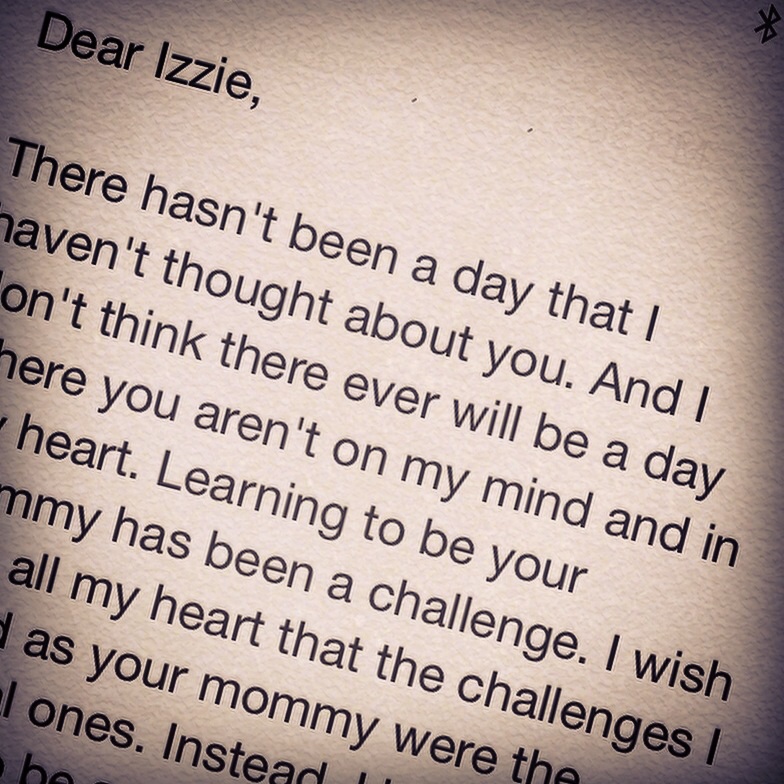 Dear Izzie,
There hasn't been a day that I
haven't thought about you. And I
don't think there ever will be a day
here you aren't on my mind and in
heart. Learning to be your
mmy has been a challenge. I wish
all my heart that the challenges I
as your mommy were the
ones. Instead,
be